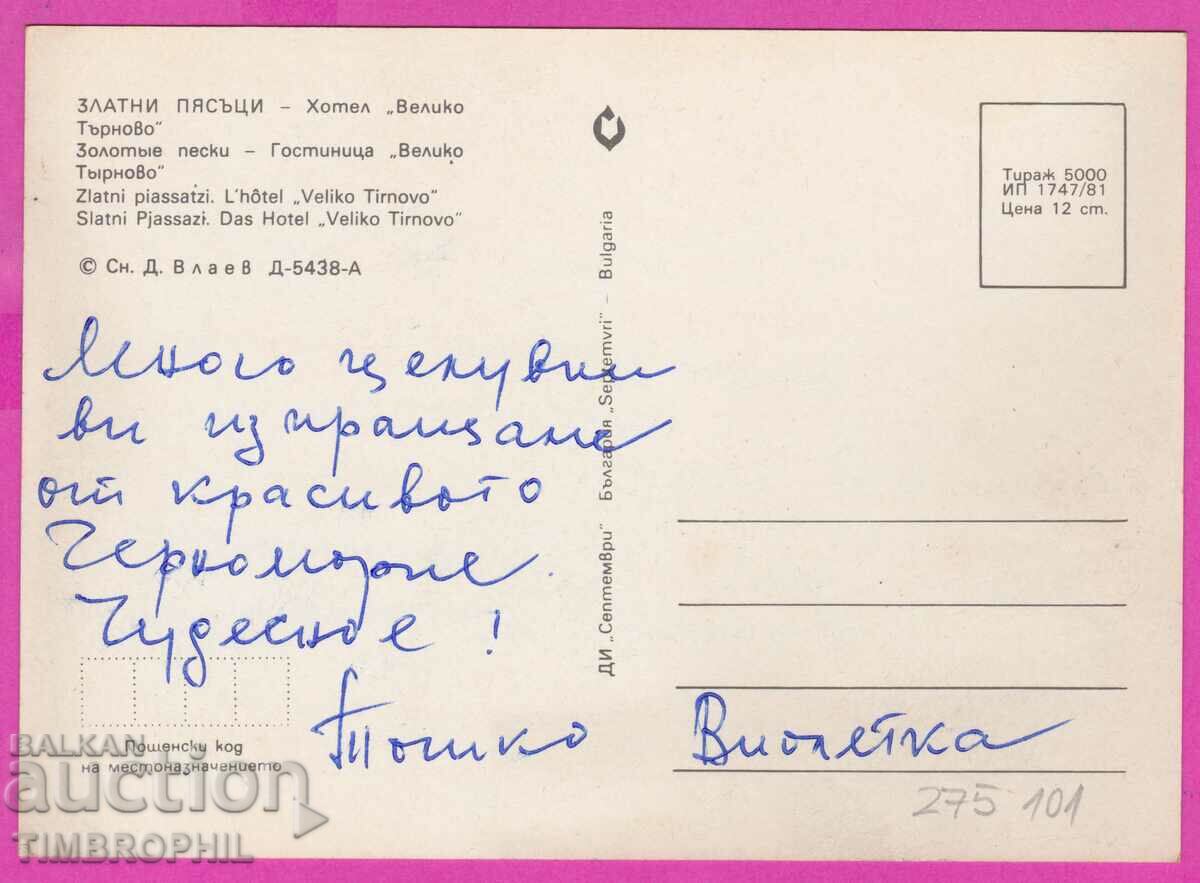 ЗЛАТНИ ПЯСЪЦИ – Хотел „Велико
Търново“
Золотые пески – Гостиница „Велико
Тырново“
Zlatni piassatzi. L'hôtel „Veliko Tirnovo“
Slatni Pjassazi. Das Hotel „Veliko Tirnovo“
© Сн. Д. Влаев Д-5438-А
Много целувки
ви изпращаме
от красивото
Черноморие.
Чудесно е !
Тошко Виолетка
Пощенски код
на местоназначението
ДИ „Септември“ България „Septemvri“ - Bulgaria
Тираж 5000
ИП 1747/81
Цена 12 ст.
275 101
BALKAN
auction
TIMBROPHIL